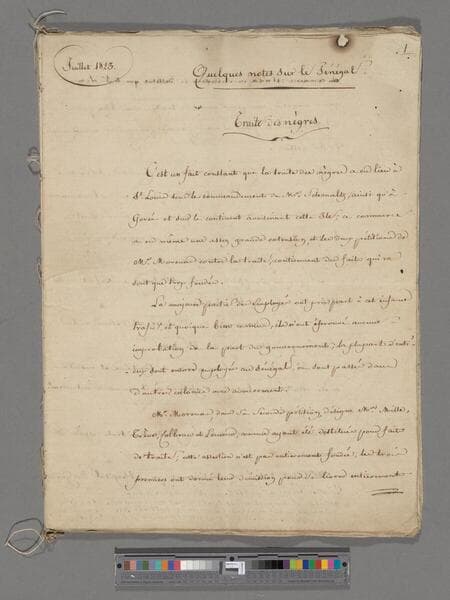 Juillet 1823.
1
Quelques notes sur le Sénégal.
Traite des nègres.
C'est un fait constant que la traite des nègres a eu lieu à
St. Louis sous le commandement de Mr. Schmaltz, ainsi qu'à
Gorée et sur le continent avoisinant cette Isle; ce commerce
a eu même une assez grande extension et les deux pétitions de
Mr. Morenas contre la traite, contiennent des faits qui ne
sont que trop fondés.
La majeure partie des Employés ont pris part à cet infame
trafic, et quoique bien connus, ils n'ont éprouvé aucune
improbation de la part du gouvernement; la plupart d'entr'
eux sont encore employés au Sénégal, ou sont passés dans
d'autres colonies avec avancement.
Mr. Morenas dans sa Seconde pétition désigne Mrs. Mille,
et comme ayant été destitués pour fait
de traite; cette assertion n'est pas entièrement fondée; les trois
premiers ont donné leur démission pour se livrer entièrement